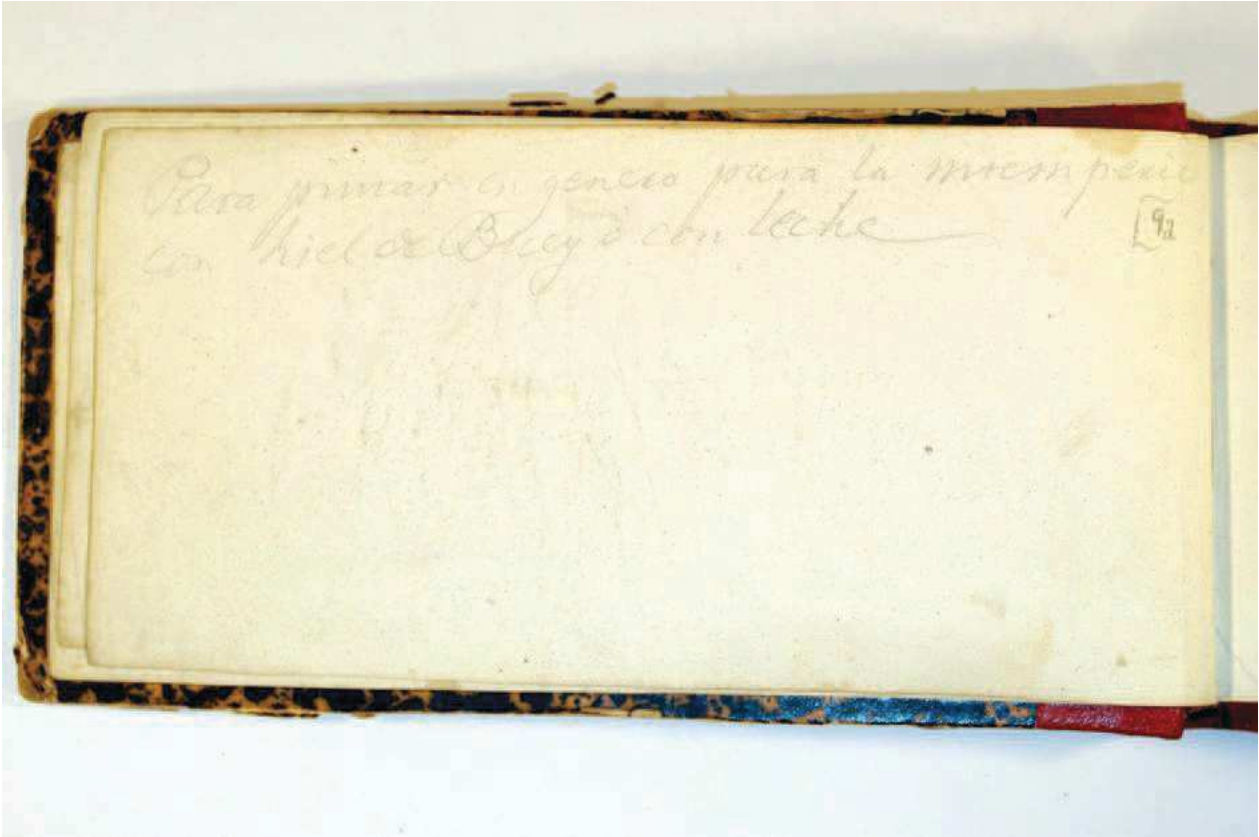 Para pintar en genero para la intemperie
con hiel de Buey o con leche
9a